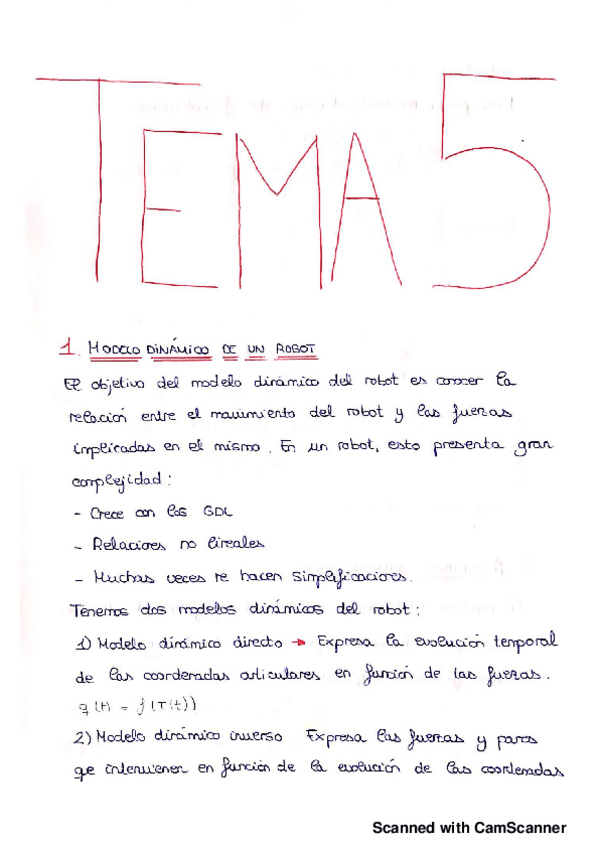 TEMA 5
1. MODELO DINÁMICO DE UN ROBOT
El objetivo del modelo dinámico del robot es conocer la
relación entre el movimiento del robot y las fuerzas
implicadas en el mismo. En un robot, esto presenta gran
complejidad:
- Crece con los GDL
- Relaciones no lineales
- Muchas veces se hacen simplificaciones.
Tenemos dos modelos dinámicos del robot:
1) Modelo dinámico directo → Expresa la evolución temporal
de las coordenadas articulares en función de las fuerzas.
q(t) = f(T(t))
2) Modelo dinámico inverso Expresa las fuerzas y pares
qe intervienen en función de la evolución de las coordenadas
Scanned with CamScanner